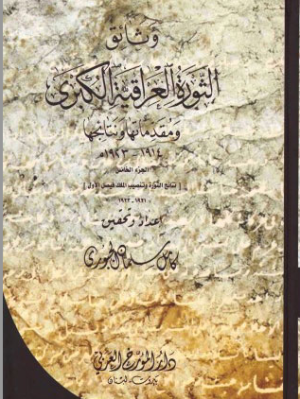 وثائق
الثورة العراقية الكبرى
ومقدماتها ونتائجها
١٩١٤ - ١٩٢٣م
الجزء الخامس
[ نتائج الثورة وتنصيب الملك فيصل الأول ]
١٩٢١ - ١٩٢٣
إعداد وتحقيق
كامل سلمان الجبوري
دار المؤرخ العربي
بيروت - لبنان